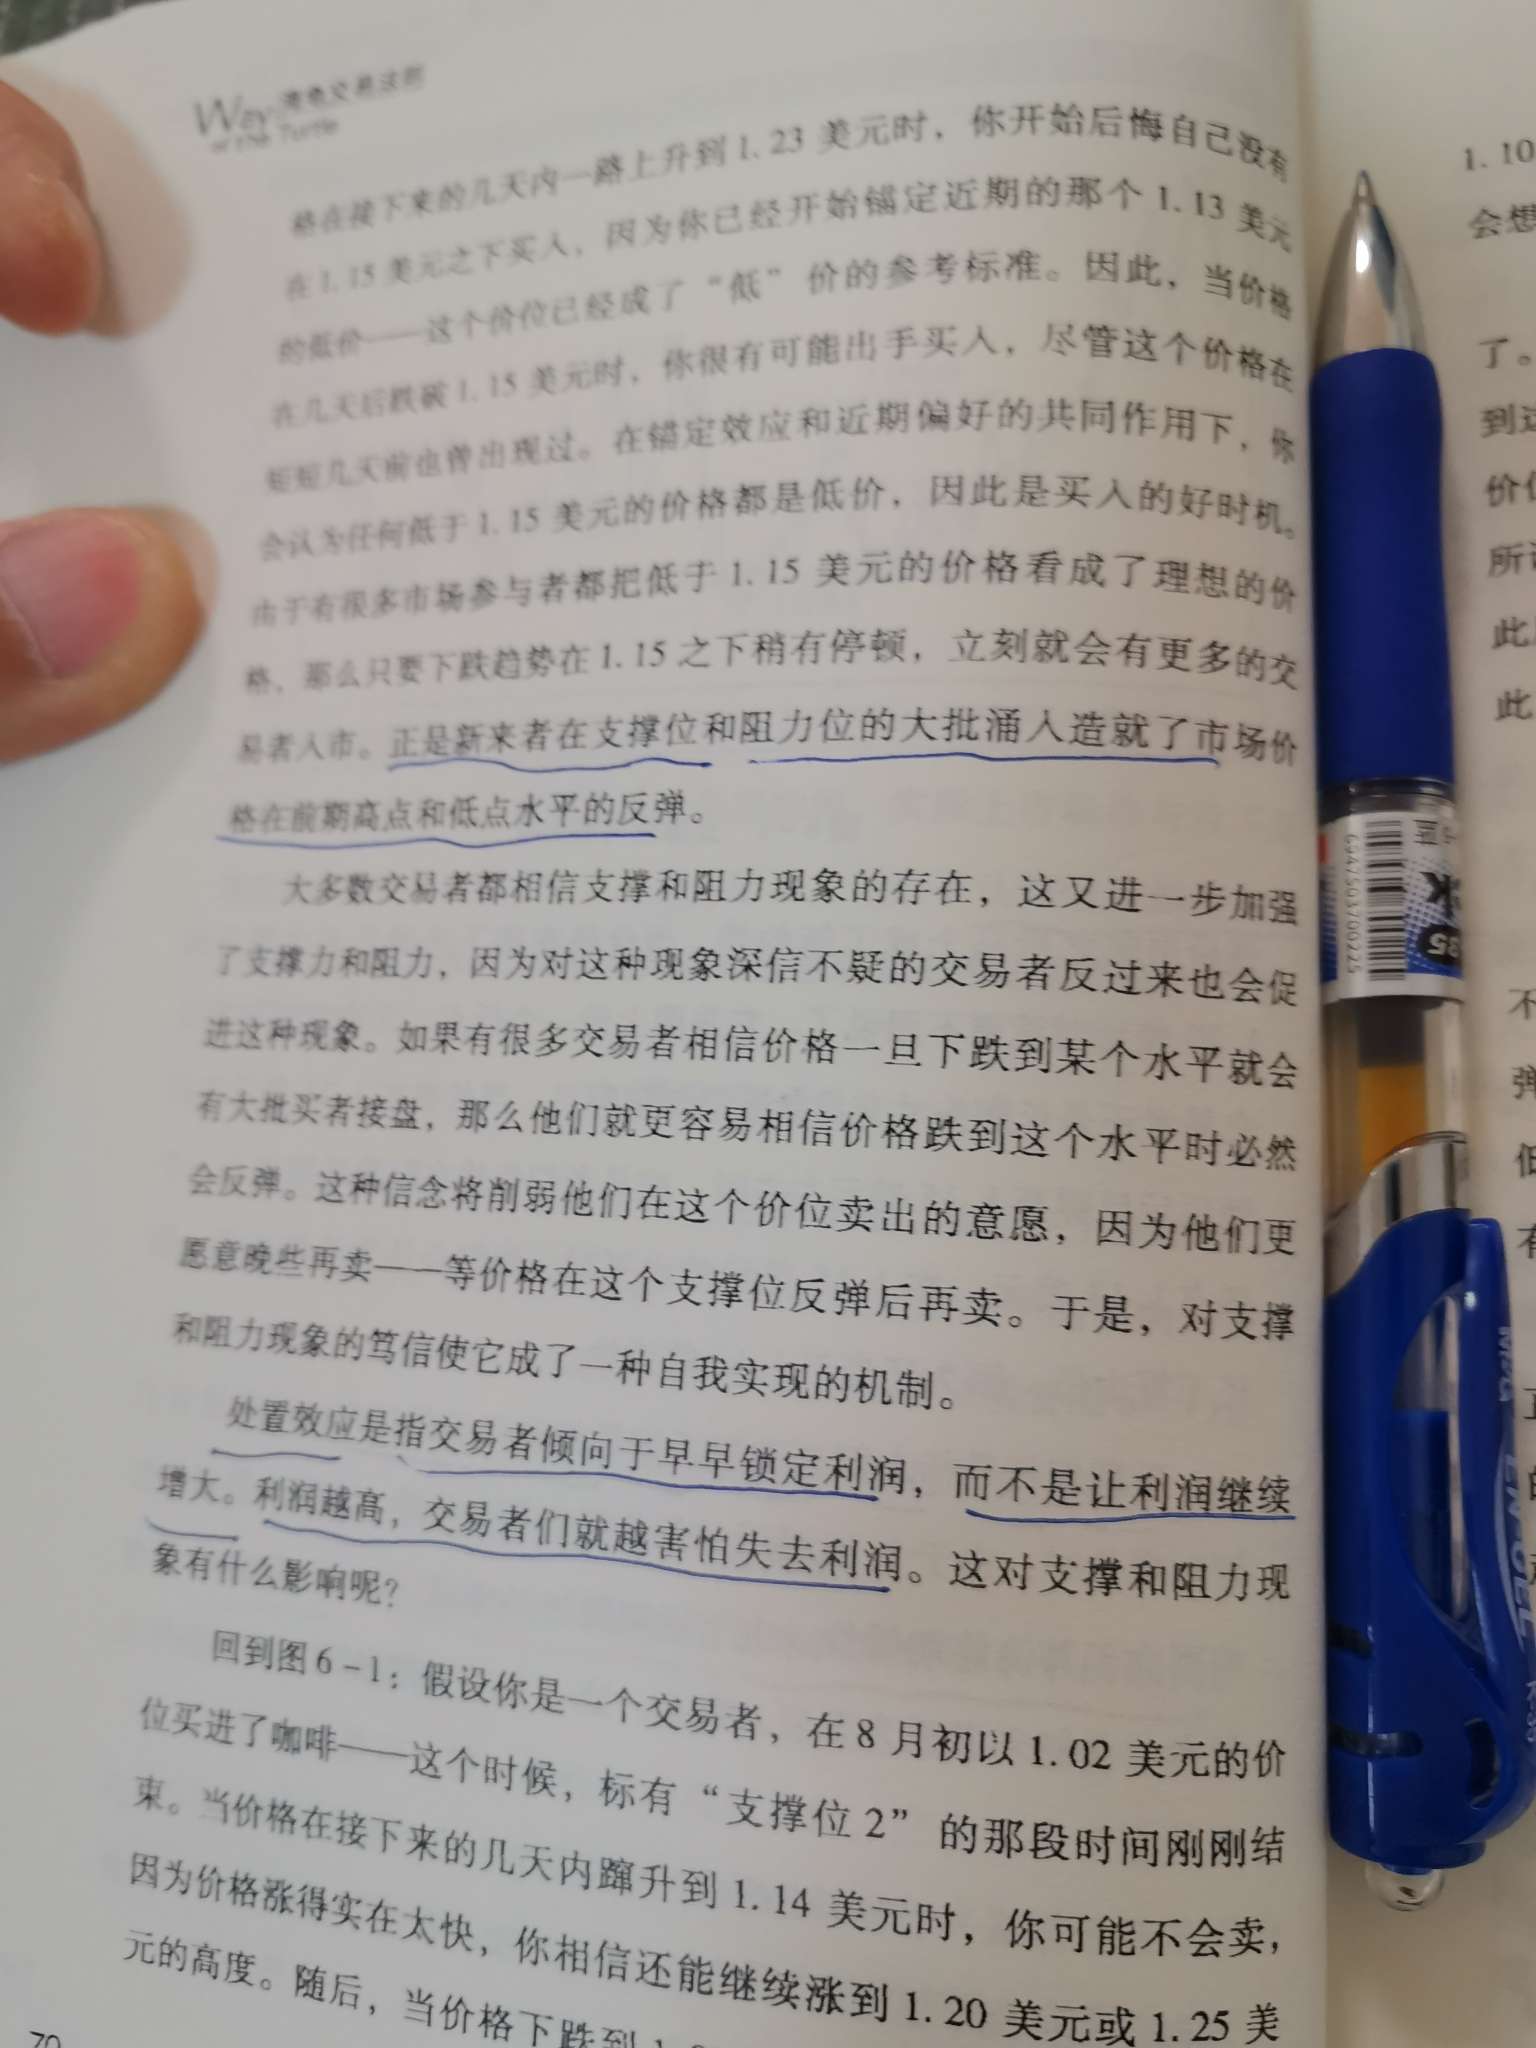 Way 海龟交易法则
of the Turtle
格在接下来的几天内一路上升到1.23美元时，你开始后悔自己没有
在1.15美元之下买入，因为你已经开始锚定近期的那个1.13美元
的低价——这个价位已经成了“低”价的参考标准。因此，当价格
在几天后跌破1.15美元时，你很有可能出手买入，尽管这个价格在
短短几天前也曾出现过。在锚定效应和近期偏好的共同作用下，你
会认为任何低于1.15美元的价格都是低价，因此是买入的好时机。
由于有很多市场参与者都把低于1.15美元的价格看成了理想的价
格，那么只要下跌趋势在1.15之下稍有停顿，立刻就会有更多的交
易者入市。正是新来者在支撑位和阻力位的大批涌入造就了市场价
格在前期高点和低点水平的反弹。
大多数交易者都相信支撑和阻力现象的存在，这又进一步加强
了支撑力和阻力，因为对这种现象深信不疑的交易者反过来也会促
进这种现象。如果有很多交易者相信价格一旦下跌到某个水平就会
有大批买者接盘，那么他们就更容易相信价格跌到这个水平时必然
会反弹。这种信念将削弱他们在这个价位卖出的意愿，因为他们更
愿意晚些再卖——等价格在这个支撑位反弹后再卖。于是，对支撑
和阻力现象的笃信使它成了一种自我实现的机制。
处置效应是指交易者倾向于早早锁定利润，而不是让利润继续
增大。利润越高，交易者们就越害怕失去利润。这对支撑和阻力现
象有什么影响呢？
回到图6-1：假设你是一个交易者，在8月初以1.02美元的价
位买进了咖啡——这个时候，标有“支撑位2”的那段时间刚刚结
束。当价格在接下来的几天内蹿升到1.14美元时，你可能不会卖，
因为价格涨得实在太快，你相信还能继续涨到1.20美元或1.25美
元的高度。随后，当价格下跌到
70
1.10
会想
了。
到这
价位
所
此
此
不
弹
低
有
6947503700225